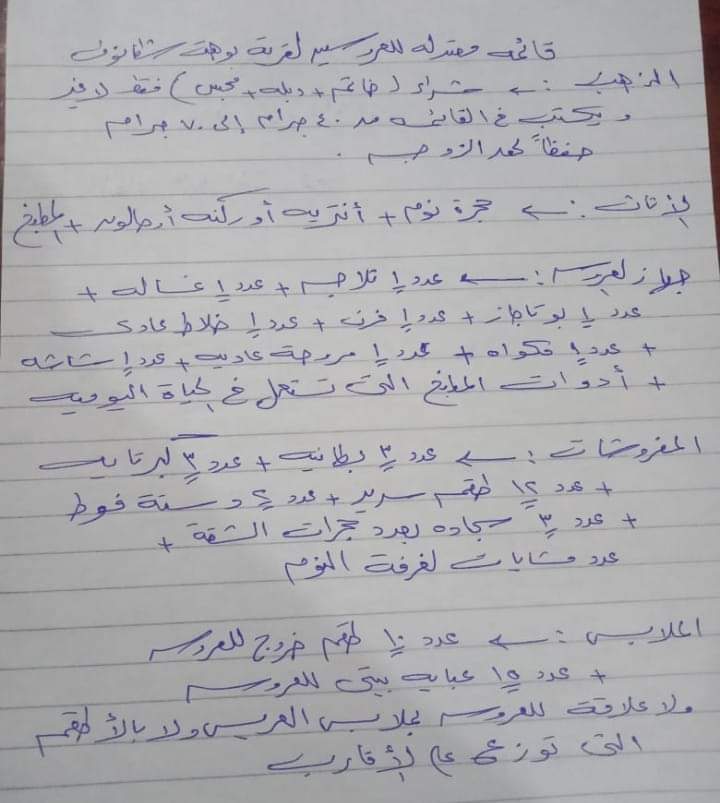 قائمة مقترحه للعروسين لقرية بوهة شطانوف
الذهب :← شراء (خاتم + دبله + محبس) فقط لا غير
ويكتب في القائمه من ٤٠ جرام إلى ٧٠ جرام
حفظاً لحق الزوجه .
الأثاث :← حجرة نوم + أنتريه أو ركنه أو صالون + المطبخ
جهاز العروسه :← عدد ١ تلاجه + عدد ١ غساله +
عدد ١ بوتاجاز + عدد ١ فرن + عدد ١ خلاط عادى
+ عدد ١ مكواه + عدد ١ مروحة عاديه + عدد ١ شاشه
+ أدوات المطبخ التى تستعمل في الحياة اليوميه
المفروشات :← عدد ٣ بطانيه + عدد ٣ كبرتايه
+ عدد ١٢ طقم سرير + عدد ٢ دستة فوط
+ عدد ٣ سجاده بعدد حجرات الشقة +
عدد مشايات لغرفة النوم
الملابس :← عدد ١٠ طقم خروج للعروسه
+ عدد ١٥ عبايه بيتى للعروسه
ولا علاقة للعروسه بملابس العريس ولا بالأطقم
التى توزع على الأقارب